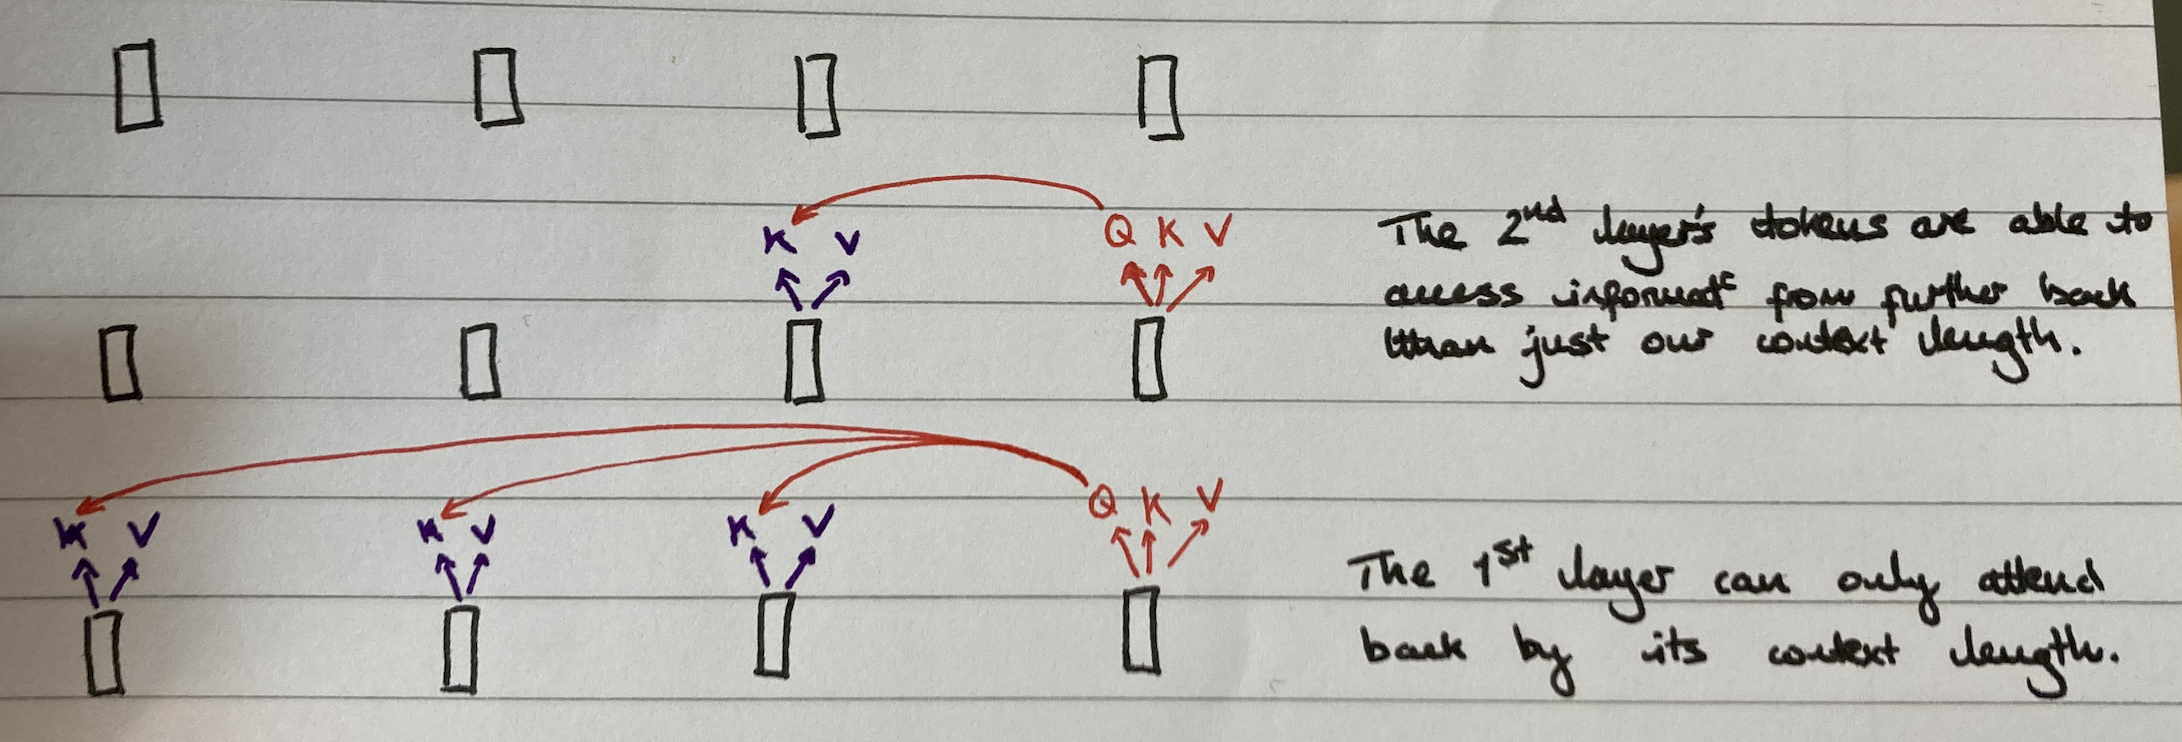 K V Q K V
The 2nd layer's tokens are able to
access informatᶜ from further back
than just our context length.
K V K V K V Q K V
The 1st layer can only attend
back by its context length.